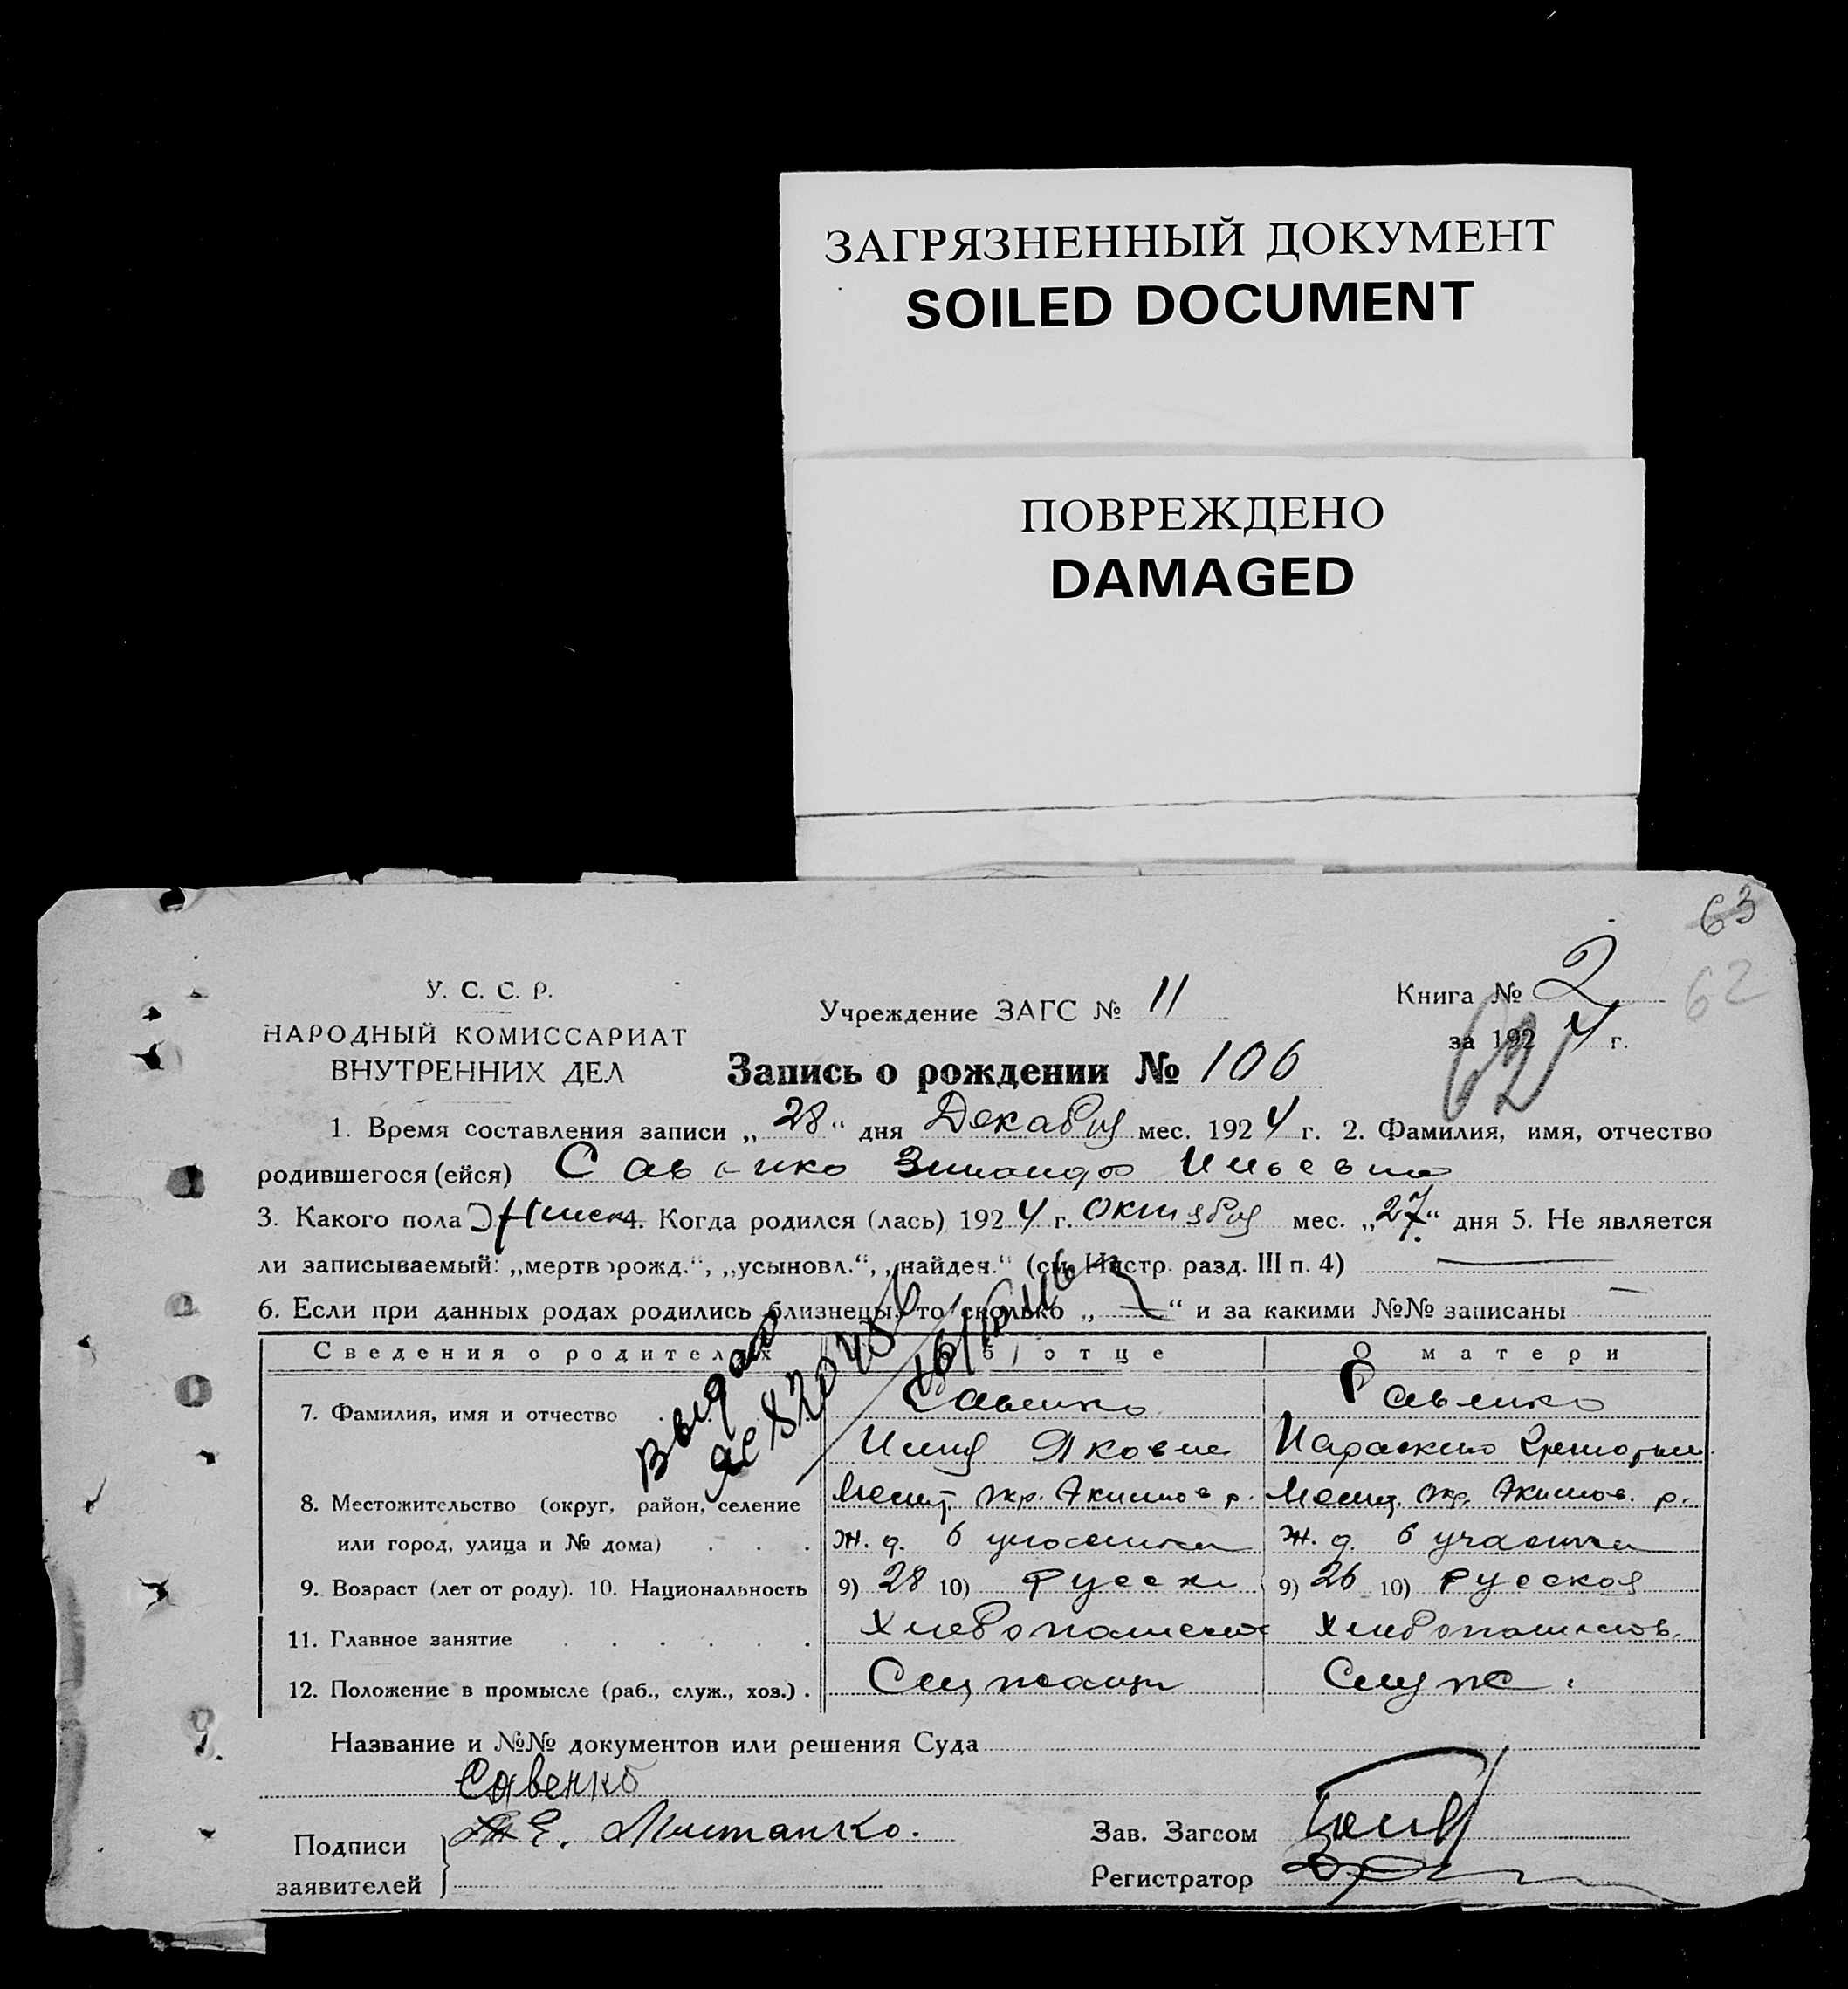 ЗАГРЯЗНЕННЫЙ ДОКУМЕНТ
SOILED DOCUMENT
ПОВРЕЖДЕНО
DAMAGED
63
62
У. С. С. Р.
НАРОДНЫЙ КОМИССАРИАТ
ВНУТРЕННИХ ДЕЛ
Учреждение ЗАГС № 11
Книга № 2
за 1924 г.
62
Запись о рождении № 106
1. Время составления записи „28“ дня Декабря мес. 1924 г. 2. Фамилия, имя, отчество
родившегося (ейся) Савенко Зинаида Ильевна
3. Какого пола Женск 4. Когда родился (лась) 1924 г. Октября мес. „27“ дня 5. Не является
ли записываемый: „мертворожд.“, „усыновл.“, „найден.“ (см. Инстр. разд. III п. 4) —
6. Если при данных родах родились близнецы, то сколько „—“ и за какими №№ записаны —
Сведения о родителях О б отце О матери
7. Фамилия, имя и отчество Савенко Савенко
Илия Яковле Параскева Григорьев
8. Местожительство (округ, район, селение Мелит. окр. Акимов р. Мелит. окр. Акимов. р.
или город, улица и № дома) . . . ж. д. 6 участка ж. д. 6 участка
9. Возраст (лет от роду). 10. Национальность 9) 28 10) Русск 9) 26 10) Русская
11. Главное занятие . . . . . . Хлебопашест Хлебопашеств.
12. Положение в промысле (раб., служ., хоз.) . Служащи Служ.
Выдано
Название и №№ документов или решения Суда
Савенко
Подписи
заявителей
Зав. Загсом
Регистратор